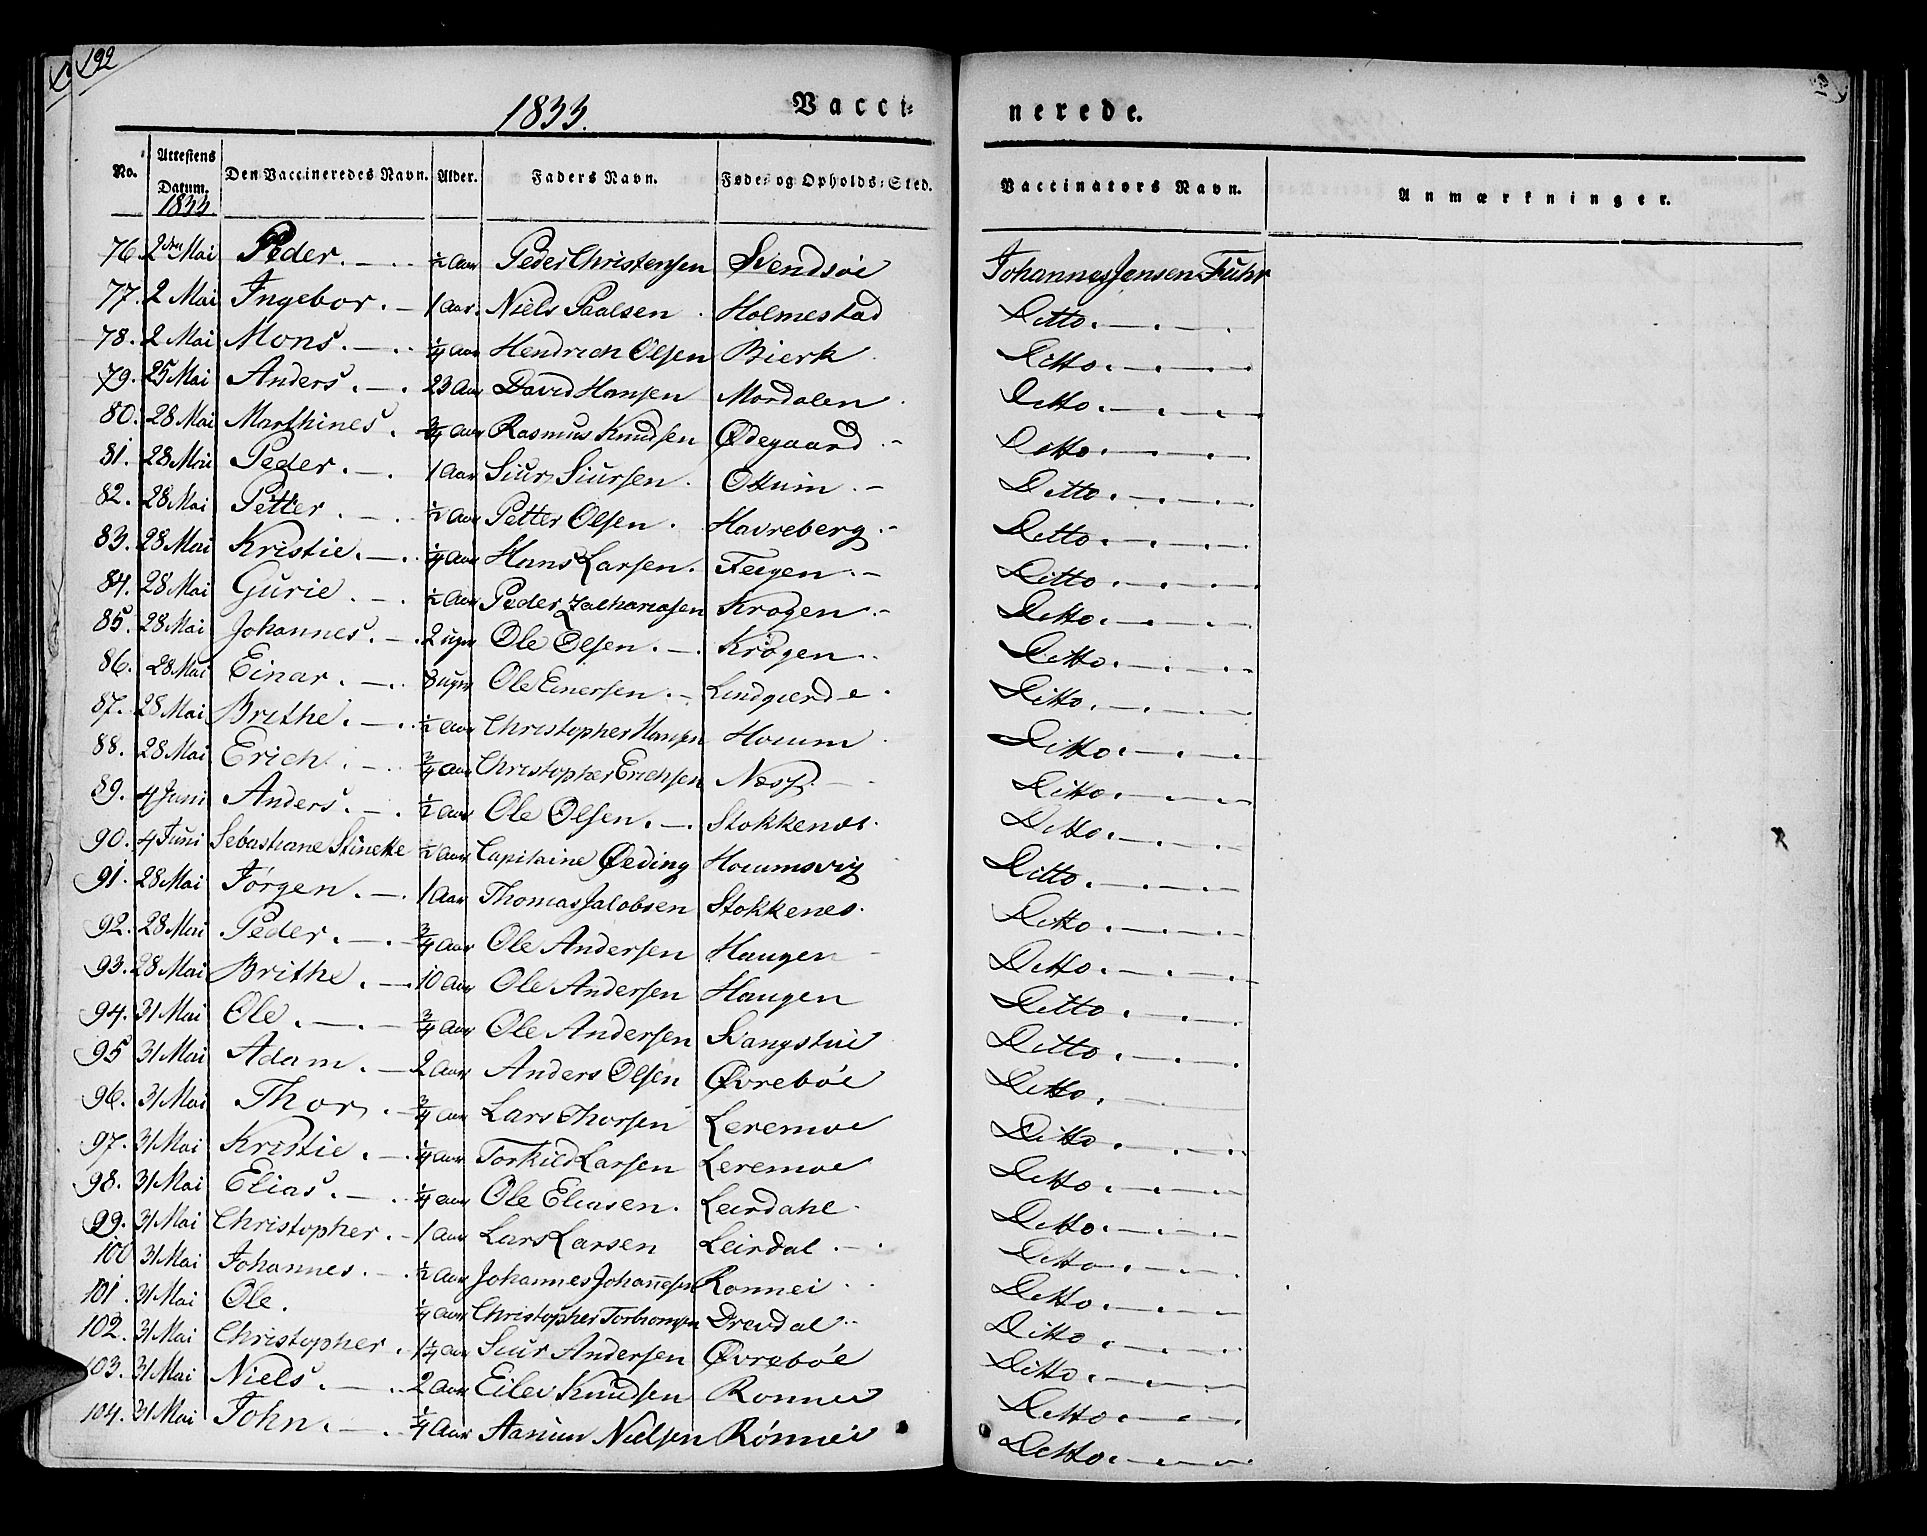 192
1833.
Vacci-
nerede.
No. Attestens Datum. Den Vaccineredes Navn. Alder. Faders Navn. Føde- og Opholds-Sted. Vaccinators Navn. Anmærkninger.
1833
76 2den Mai Peder. ½ Aar Peder Christensen Svendsøe Johannes Jensen Fuhr
77. 2 Mai Ingebor. 1 Aar. Niels Paalsen Holmestad Ditto.
78. 2 Mai Mons. ¼ Aar Hendrich Olsen Bierk Ditto.
79. 25 Mai Anders. 23 Aar David Hansen Mordalen Ditto.
80. 28 Mai Marthines. ¾ Aar Rasmus Knudsen Ødegaard Ditto.
81. 28 Mai Peder. 1 Aar Siur Siursen. Ottum Ditto.
82. 28 Mai Petter. ½ Aar Petter Olsen. Havreberg Ditto.
83. 28 Mai Kristie. ¼ Aar Hans Larsen. Feigen Ditto.
84. 28 Mai Gurie. ½ Aar Peder Zachariasen Krogen Ditto.
85. 28 Mai Johannes. 2 uger Ole Olsen. Krogen Ditto.
86. 28 Mai Einar. 8 uger Ole Einersen. Lindgierde Ditto.
87. 28 Mai Brithe. ½ Aar Christopher Hansen Houum Ditto.
88. 28 Mai Erich. ¾ Aar Christopher Erichsen Næss. Ditto.
89. 4 Juni Anders. ½ Aar Ole Olsen. Stokkenæs. Ditto.
90. 4 Juni Sebastiane Stinekke ½ Aar Capitaine Øeding Houumsvig Ditto.
91. 28 Mai Jørgen. 1 Aar Thomas Jacobsen Stokkenes. Ditto.
92. 28 Mai Peder. ¾ Aar Ole Andersen Haugen Ditto.
93. 28 Mai Brithe. 10 Aar Ole Andersen Haugen Ditto.
94. 31 Mai Ole. ¾ Aar Ole Andersen Svangstue Ditto.
95 31 Mai Adam. 2 Aar Anders Olsen Øvrebøe Ditto.
96. 31 Mai Thor. ¾ Aar Lars Thorsen Leremoe Ditto.
97. 31 Mai Kristie. ¼ Aar Torkild Larsen Leremoe Ditto.
98. 31 Mai Elias. ¼ Aar Ole Eliasen. Leirdahl. Ditto.
99. 31 Mai Christopher. 1 Aar Lars Larsen Leirdal. Ditto.
100 31 Mai Johannes. ½ Aar Johannes Johannesen Ronnei Ditto.
101. 31 Mai Ole. ¼ Aar Christopher Torbiørnsen Drevdal Ditto.
102. 31 Mai Christopher. 1¼ Aar Siur Andersen Øvrebøe Ditto.
103. 31 Mai Niels. 2 Aar Eilev Knudsen Ronnei Ditto.
104. 31 Mai John. ¼ Aar Aamun Nielsen Rønnei Ditto.